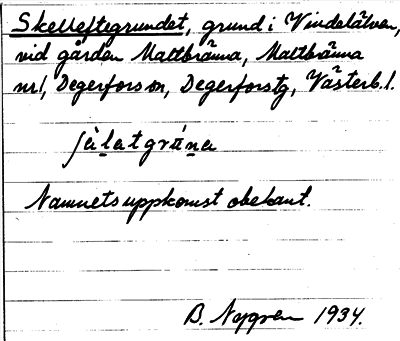 Skelleftegrundet, grund i Vindelälven,
vid gården Maltbränna, Maltbränna
nr1, Degerfors sn, Degerforstg, Västerb. l.
Namnets uppkomst obekant.
B. Nygren 1934.